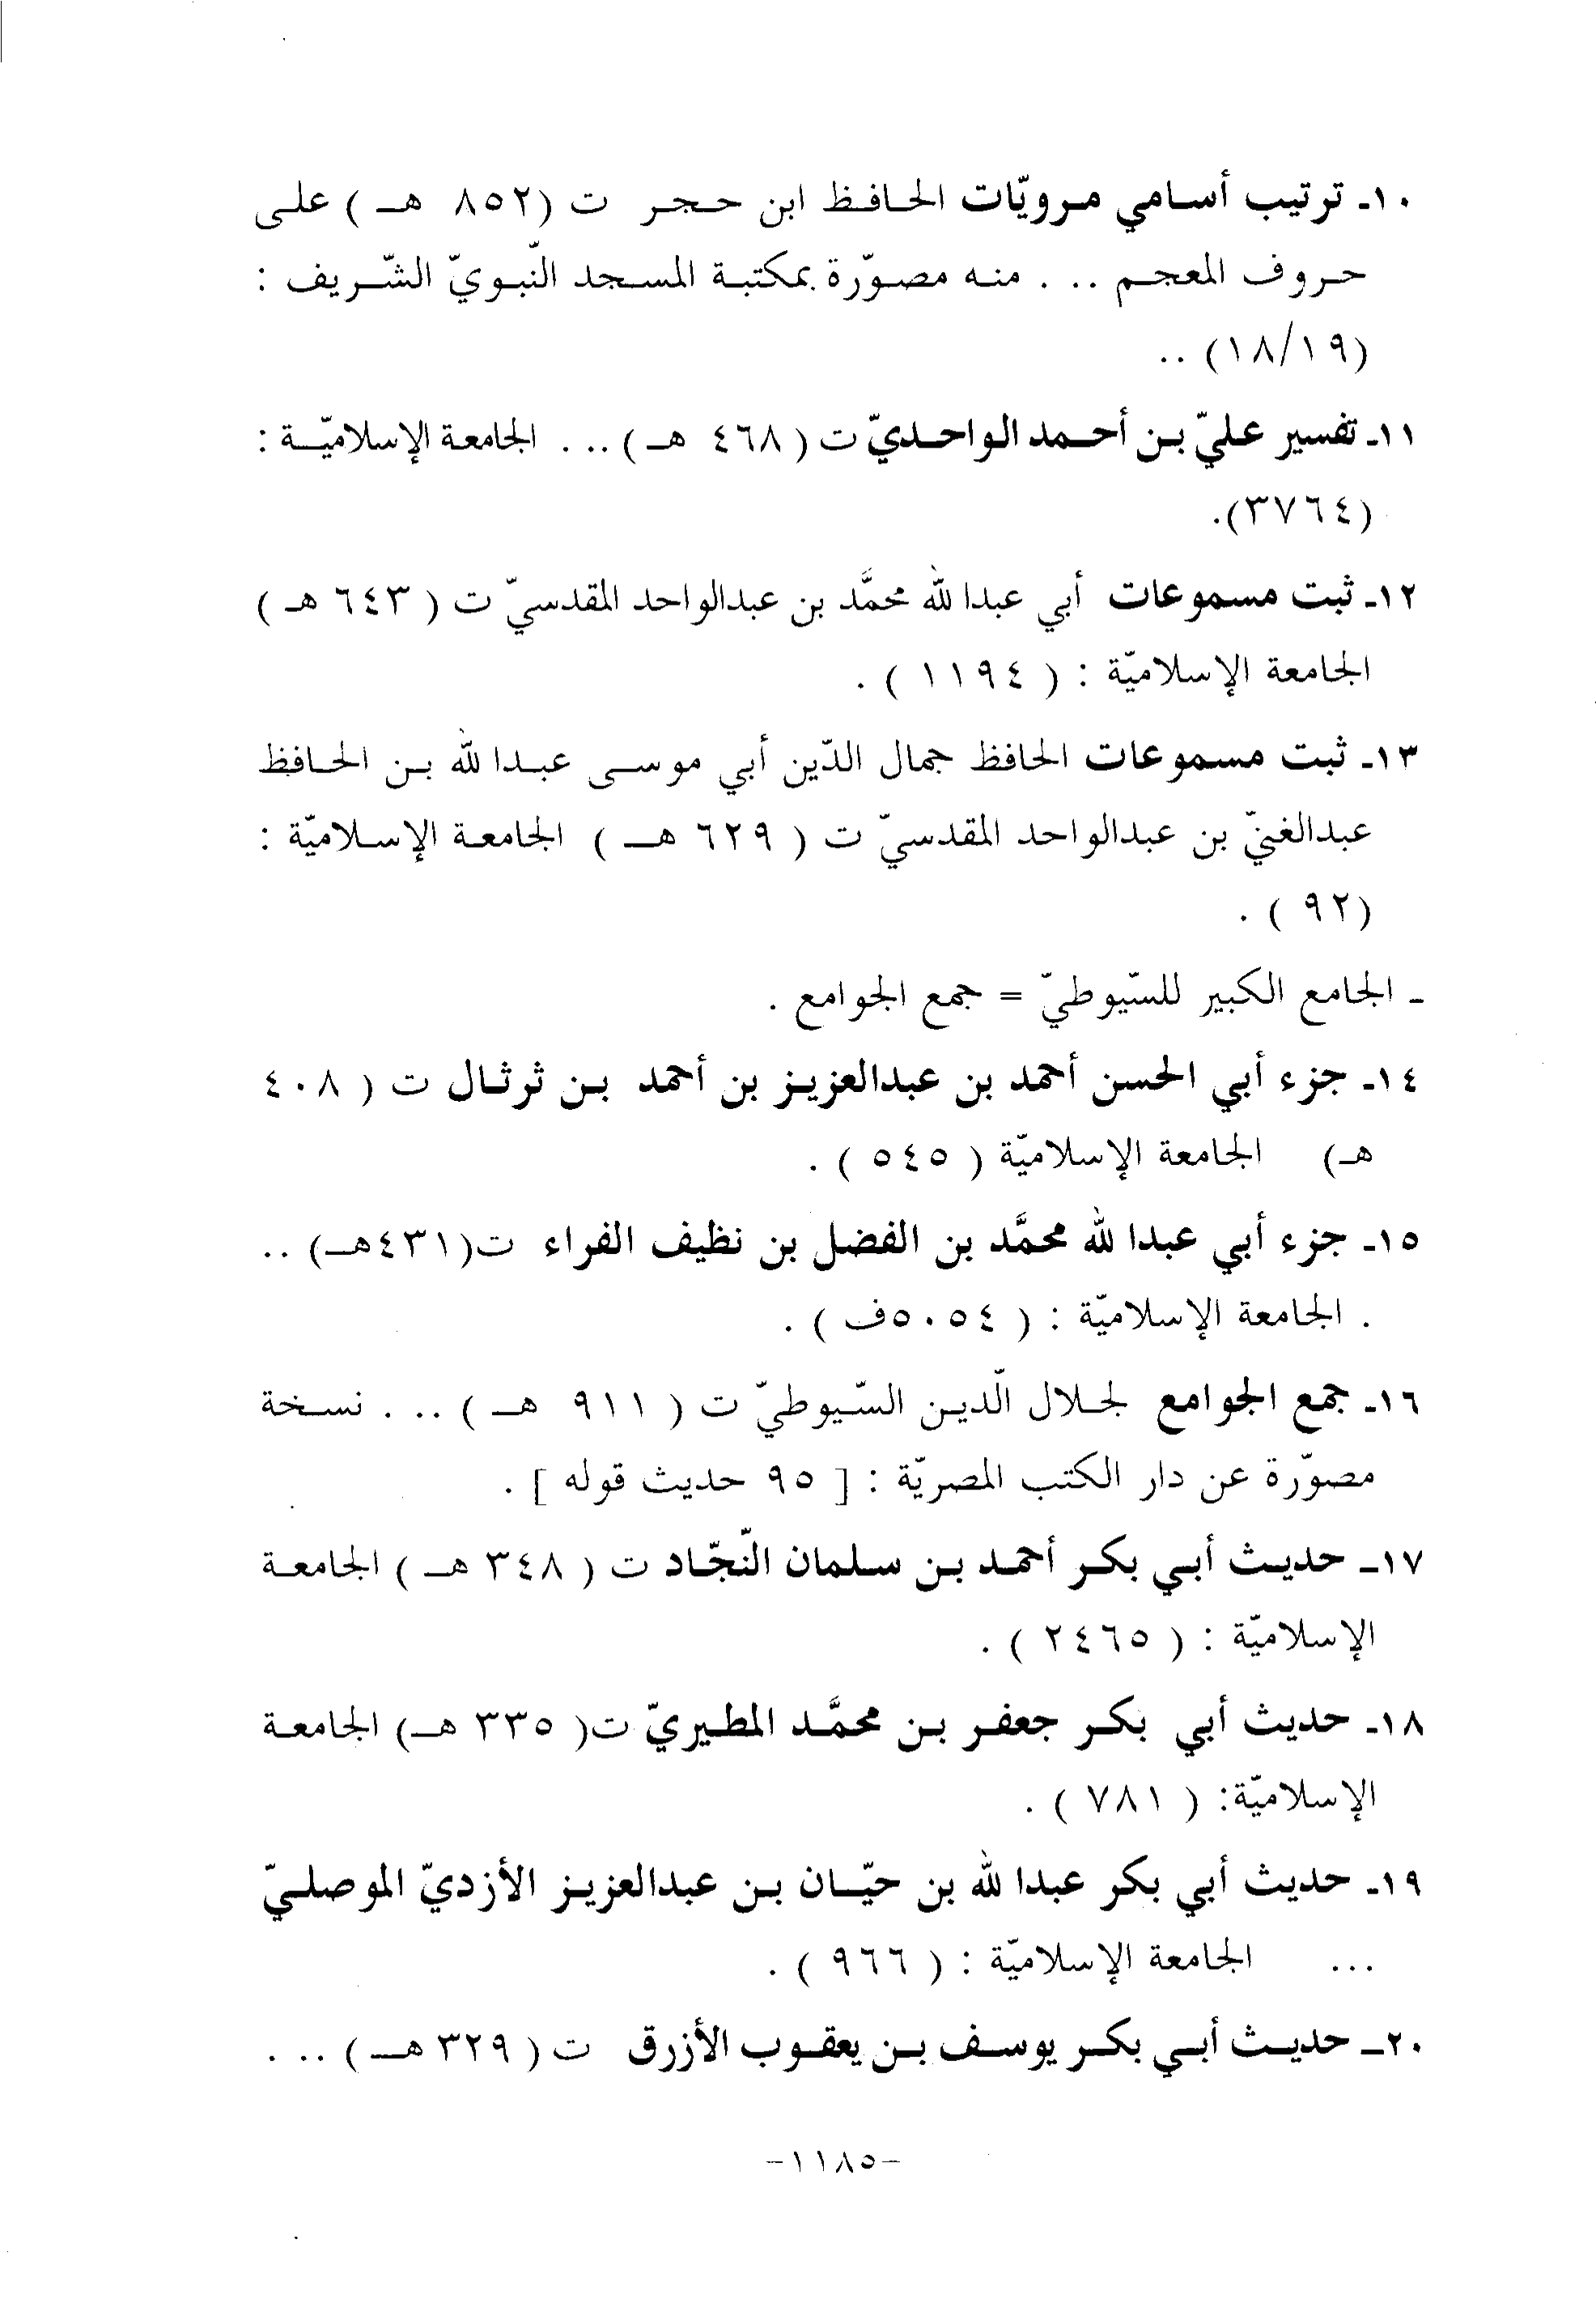 ١٠ـ ترتيب أسامي مرويّات الحافظ ابن حجر ت (٨٥٢ هـ ) على
حروف المعجم .. . منه مصوّرة بمكتبة المسجد النّبويّ الشّريف :
(١٨/١٩) ..
١١ـ تفسير عليّ بن أحمد الواحديّ ت ( ٤٦٨ هـ ) .. . الجامعة الإسلاميّة :
(٣٧٦٤).
١٢ـ ثبت مسموعات أبي عبدالله محمَّد بن عبدالواحد المقدسيّ ت ( ٦٤٣ هـ )
الجامعة الإسلاميّة : ( ١١٩٤ ) .
١٣ـ ثبت مسموعات الحافظ جمال الدّين أبي موسى عبدالله بن الحافظ
عبدالغنيّ بن عبدالواحد المقدسيّ ت ( ٦٢٩ هـ ) الجامعة الإسلاميّة :
(٩٢ ) .
ـ الجامع الكبير للسّيوطيّ = جمع الجوامع .
١٤ـ جزء أبي الحسن أحمد بن عبدالعزيز بن أحمد بن ثرثال ت ( ٤٠٨
هـ) الجامعة الإسلاميّة ( ٥٤٥ ) .
١٥ـ جزء أبي عبدالله محمَّد بن الفضل بن نظيف الفراء ت(٤٣١هـ) ..
. الجامعة الإسلاميّة : ( ٥٠٥٤ف ) .
١٦ـ جمع الجوامع لجلال الّدين السّيوطيّ ت ( ٩١١ هـ ) .. . نسخة
مصوّرة عن دار الكتب المصريّة : [ ٩٥ حديث قوله ] .
١٧ـ حديث أبي بكر أحمد بن سلمان النّجّاد ت ( ٣٤٨ هـ ) الجامعة
الإسلاميّة : ( ٢٤٦٥ ) .
١٨ـ حديث أبي بكر جعفر بن محمَّد المطيريّ ت( ٣٣٥ هـ) الجامعة
الإسلاميّة: ( ٧٨١ ) .
١٩ـ حديث أبي بكر عبدالله بن حيّان بن عبدالعزيز الأزديّ الموصليّ
... الجامعة الإسلاميّة : ( ٩٦٦ ) .
٢٠ـ حديث أبي بكر يوسف بن يعقوب الأزرق ت ( ٣٢٩ هـ ) .. .
-١١٨٥-